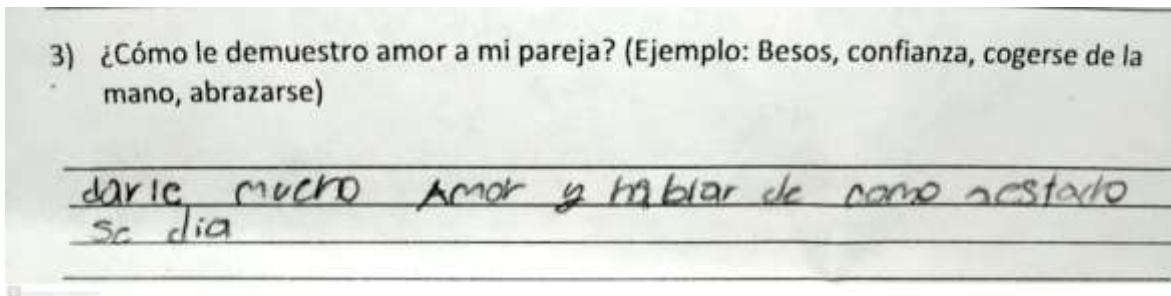 3) ¿Cómo le demuestro amor a mi pareja? (Ejemplo: Besos, confianza, cogerse de la
mano, abrazarse)
darle mucho Amor y hablar de como aestado
se dia